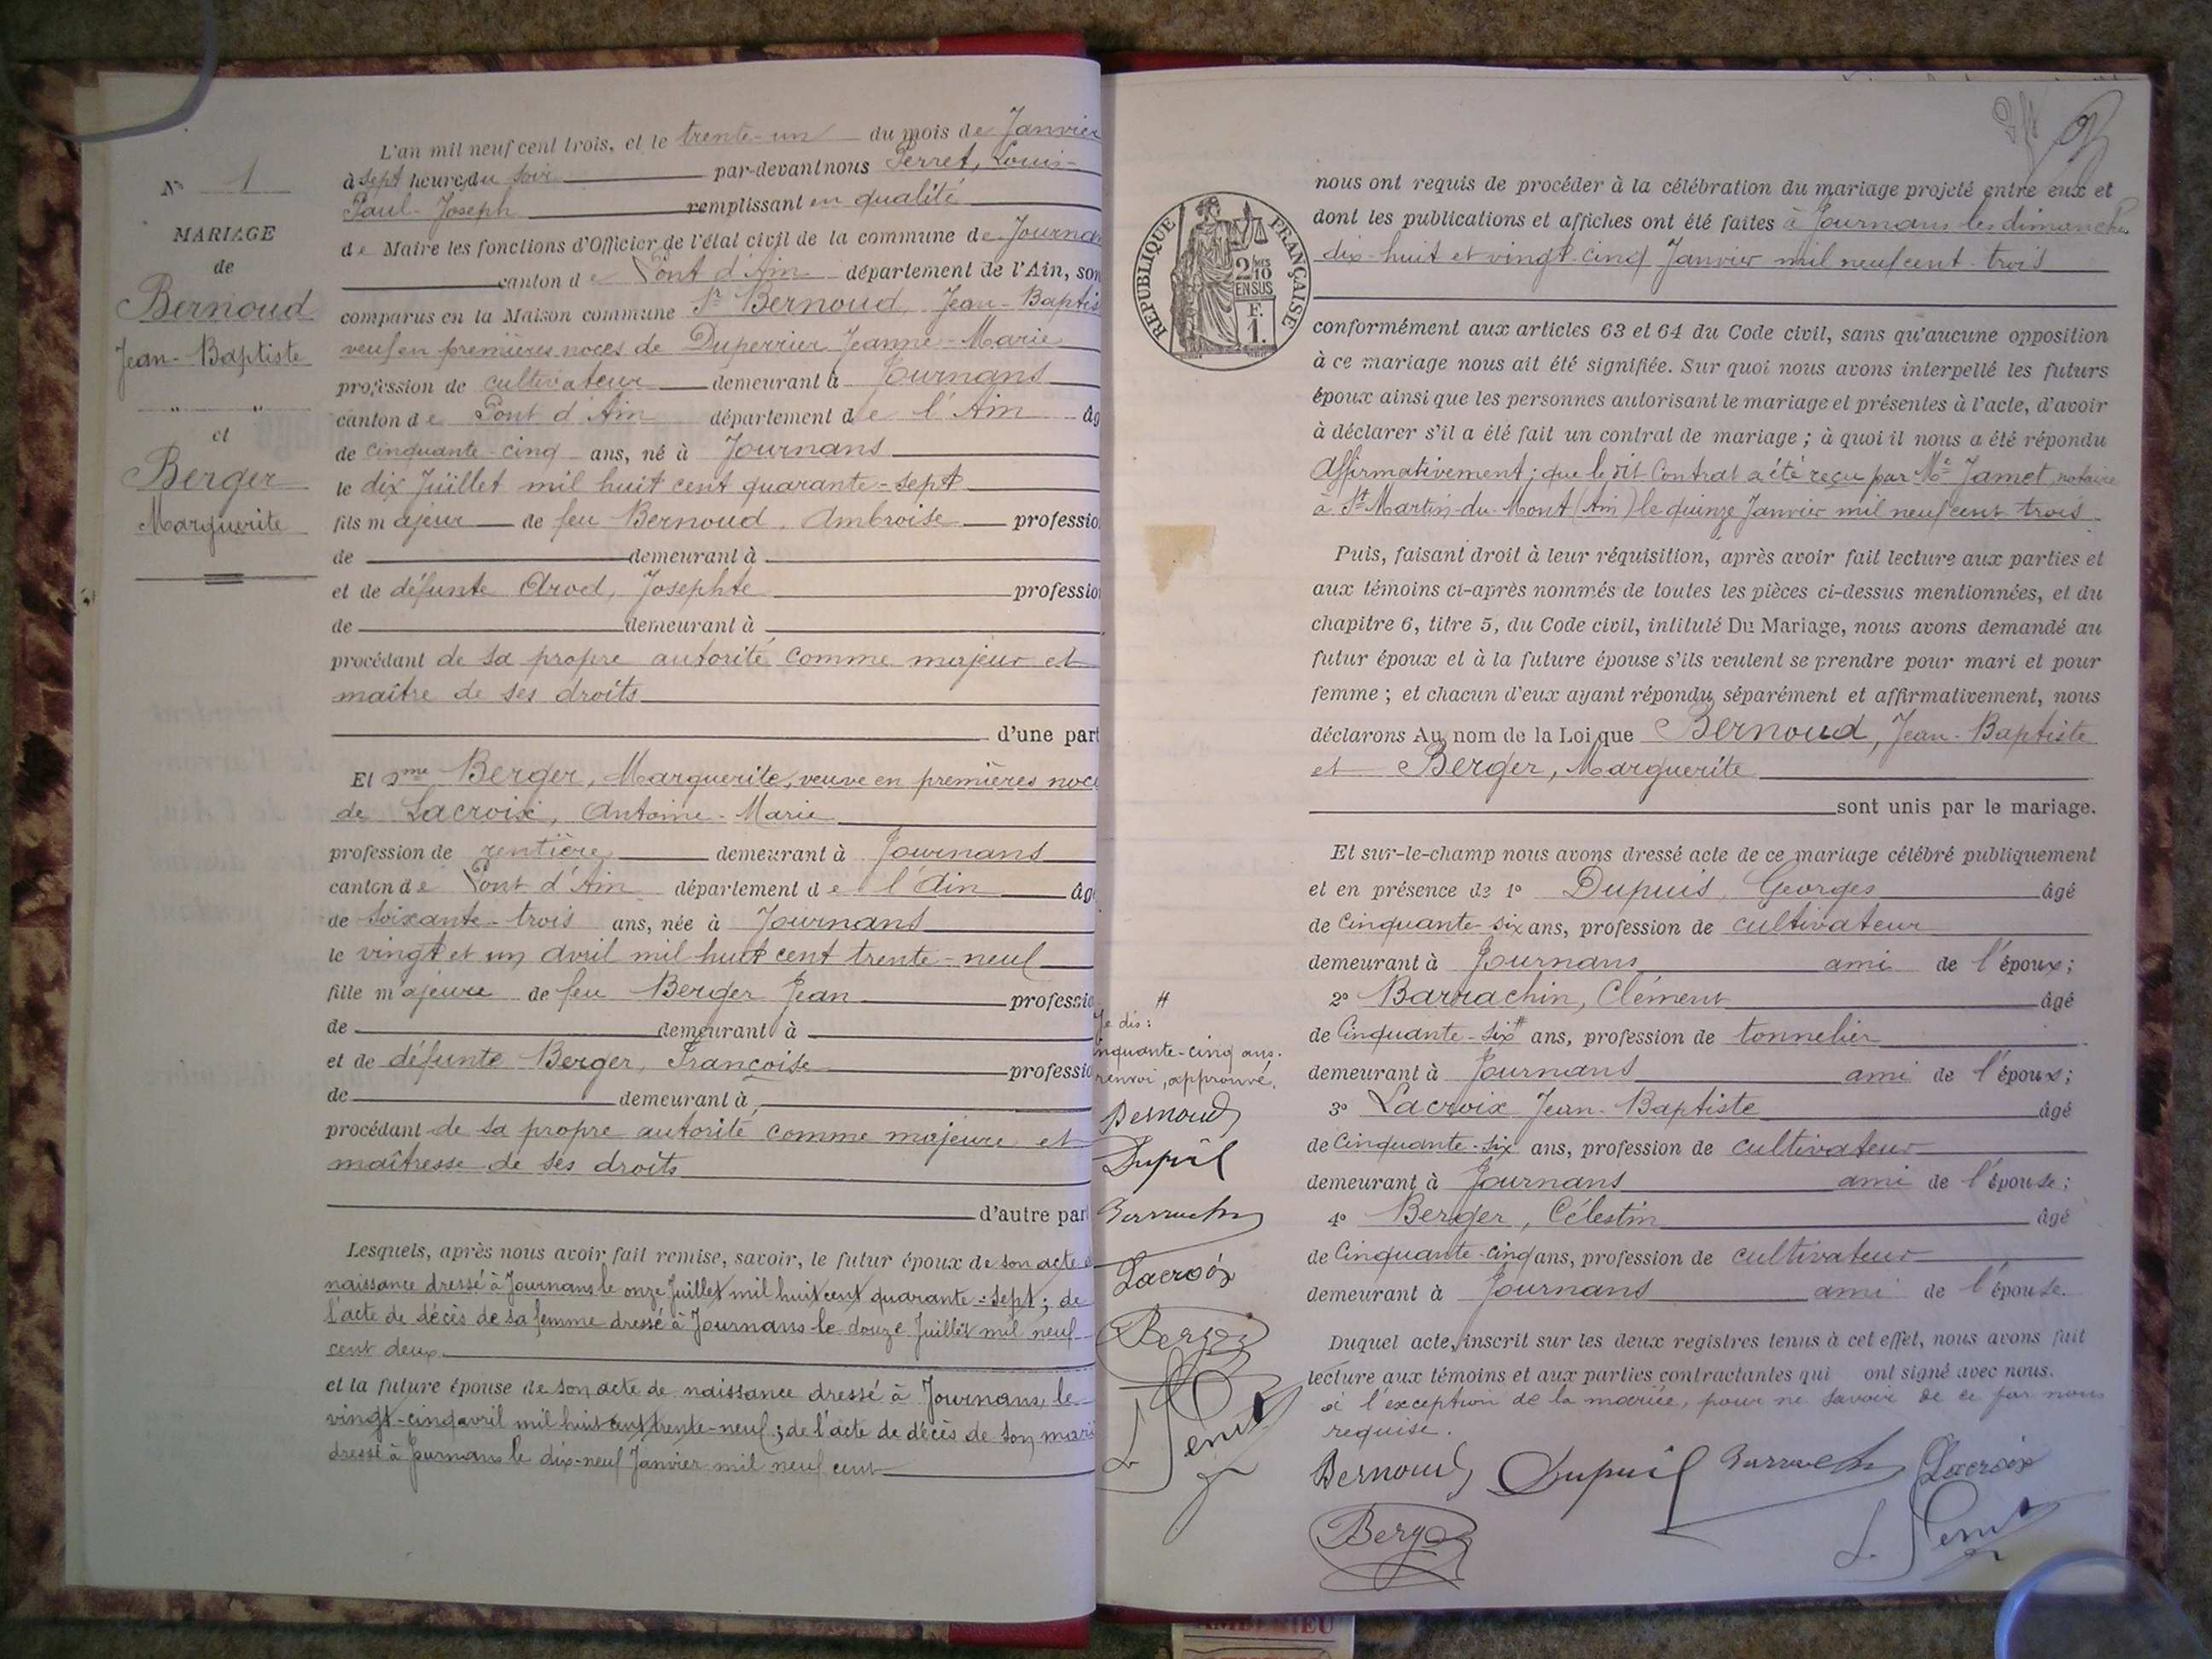 N° 1
MARIAGE
de
Bernoud
Jean-Baptiste
" "
et
Berger
Marguerite
L'an mil neuf cent trois, et le trente-un du mois de Janvier
à sept heures du soir par-devant nous Perret, Louis-
Paul-Joseph remplissant en qualité
de Maire les fonctions d'Officier de l'état civil de la commune de Journa
canton de Pont d'Ain département de l'Ain, son
comparus en la Maison commune Sr Bernoud, Jean-Baptis
veuf en premières noces de Duperrier Jeanne-Marie
profession de cultivateur demeurant à Journans
canton de Pont d'Ain département de l'Ain âg
de cinquante-cinq ans, né à Journans
le dix Juillet mil huit cent quarante-sept
fils majeur de feu Bernoud, Ambroise professio
de demeurant à
et de défunte Arod, Josephte profession
de demeurant à
procédant de sa propre autorité comme majeur et
maître de ses droits
d'une part
Et Dme Berger, Marguerite, veuve en premières noce
de Lacroix, Antoine-Marie
profession de rentière demeurant à Journans
canton de Pont d'Ain département de l'Ain âgé
de soixante-trois ans, née à Journans
le vingt et un avril mil huit cent trente-neuf
fille majeure de feu Berger Jean professio
de demeurant à
et de défunte Berger, Françoise professio
de demeurant à
procédant de sa propre autorité comme majeure et
maîtresse de ses droits
d'autre part
Lesquels, après nous avoir fait remise, savoir, le futur époux de son acte d
naissance dressé à Journans le onze Juillet mil huit cent quarante-sept ; de
l'acte de décès de sa femme dressé à Journans le douze Juillet mil neuf
cent deux
et la future épouse de son acte de naissance dressé à Journans, le
vingt-cinq avril mil huit cent trente-neuf ; de l'acte de décès de son mari
dressé à Journans le dix-neuf Janvier mil neuf cent
RÉPUBLIQUE FRANÇAISE
2/10
EN SUS
F.
1.
nous ont requis de procéder à la célébration du mariage projeté entre eux et
dont les publications et affiches ont été faites à Journans les dimanches
dix-huit et vingt-cinq Janvier mil neuf cent trois
conformément aux articles 63 et 64 du Code civil, sans qu'aucune opposition
à ce mariage nous ait été signifiée. Sur quoi nous avons interpellé les futurs
époux ainsi que les personnes autorisant le mariage et présentes à l'acte, d'avoir
à déclarer s'il a été fait un contrat de mariage ; à quoi il nous a été répondu
Affirmativement ; que le dit Contrat a été reçu par Me Jamet, notaire
à St Martin-du-Mont (Ain) le quinze Janvier mil neuf cent trois
Puis, faisant droit à leur réquisition, après avoir fait lecture aux parties et
aux témoins ci-après nommés de toutes les pièces ci-dessus mentionnées, et du
chapitre 6, titre 5, du Code civil, intitulé Du Mariage, nous avons demandé au
futur époux et à la future épouse s'ils veulent se prendre pour mari et pour
femme ; et chacun d'eux ayant répondu séparément et affirmativement, nous
déclarons Au nom de la Loi que Bernoud, Jean-Baptiste
et Berger, Marguerite
sont unis par le mariage.
Et sur-le-champ nous avons dressé acte de ce mariage célébré publiquement
et en présence de 1° Dupuis, Georges âgé
de Cinquante-six ans, profession de cultivateur
demeurant à Journans ami de l'époux ;
2° Barrachin, Clément âgé
de Cinquante-six # ans, profession de tonnelier
demeurant à Journans ami de l'époux ;
3° Lacroix Jean-Baptiste âgé
de Cinquante-six ans, profession de cultivateur
demeurant à Journans ami de l'épouse ;
4° Berger, Célestin âgé
de Cinquante-cinq ans, profession de cultivateur
demeurant à Journans ami de l'épouse.
Duquel acte, inscrit sur les deux registres tenus à cet effet, nous avons fait
lecture aux témoins et aux parties contractantes qui ont signé avec nous.
à l'exception de la mariée, pour ne savoir de ce par nous
requise.
Bernoud Dupuis Barrachin Lacroix
Berger L. Perret
#
Je dis :
inquante-cinq ans.
renvoi, approuvé.
Bernoud
Dupuis
Barrachin
Lacroix
Berger
L. Perret